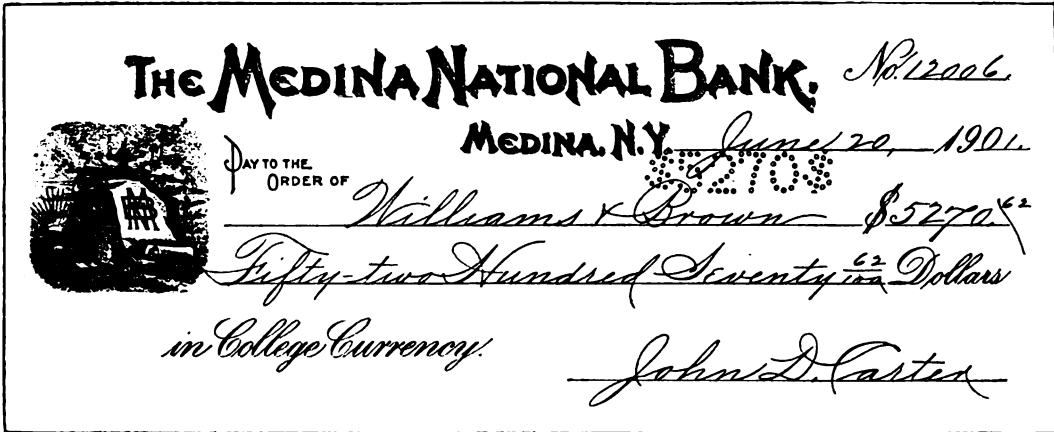 THE MEDINA NATIONAL BANK. No. 12006.
MEDINA. N.Y. June 20, 1901.
$5270$
PAY TO THE
ORDER OF
Williams & Brown $5270.62
Fifty-two Hundred Seventy 62/100 Dollars
in College Currency.
John D. Carter
MNB